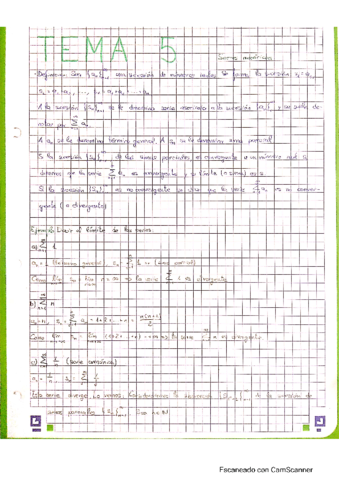 TEMA 5
Series numéricas
Definición: Sea {aₙ}ₙ₌₁^∞ una sucesión de números reales. Se forma la sucesión s₁ = a₁,
s₂ = a₁ + a₂, ..., sₙ = a₁ + a₂ + ... + aₙ
A la sucesión {sₙ}ₙ₌₁^∞ se le denomina serie asociada a la sucesión {aₙ}, y se suele de-
notar por ∑ aₙ
A aₙ se le denomina término general. A sₙ se le denomina suma parcial.
Si la sucesión {sₙ}ₙ₌₁^∞ de las sumas parciales es convergente a un número real s,
diremos que la serie ∑ aₙ es convergente y su límite (o suma) es s
Si la sucesión {sₙ}ₙ₌₁^∞ es no convergente se dice que la serie ∑ aₙ es no conver-
gente (o divergente)
Ejemplo: el límite de las series.
a) ∑ 1
aₙ = 1 (término general), sₙ = ∑ 1 = n (suma parcial)
Como lim sₙ = lim n = ∞ la serie ∑ 1 es divergente
b) ∑ n
aₙ = n, sₙ = ∑ aₙ = 1 + 2 + ... + n = n(n+1)/2
Como lim sₙ = lim (1 + 2 + ... + n) = ∞, la serie ∑ n es divergente
c) ∑ 1/n (serie armónica)
aₙ = 1/n, sₙ = ∑ 1/n
Esta serie diverge. Lo vemos. Consideramos la de la sucesión de
sumas parciales {sₙ}ₙ₌₁^∞
Escaneado con CamScanner